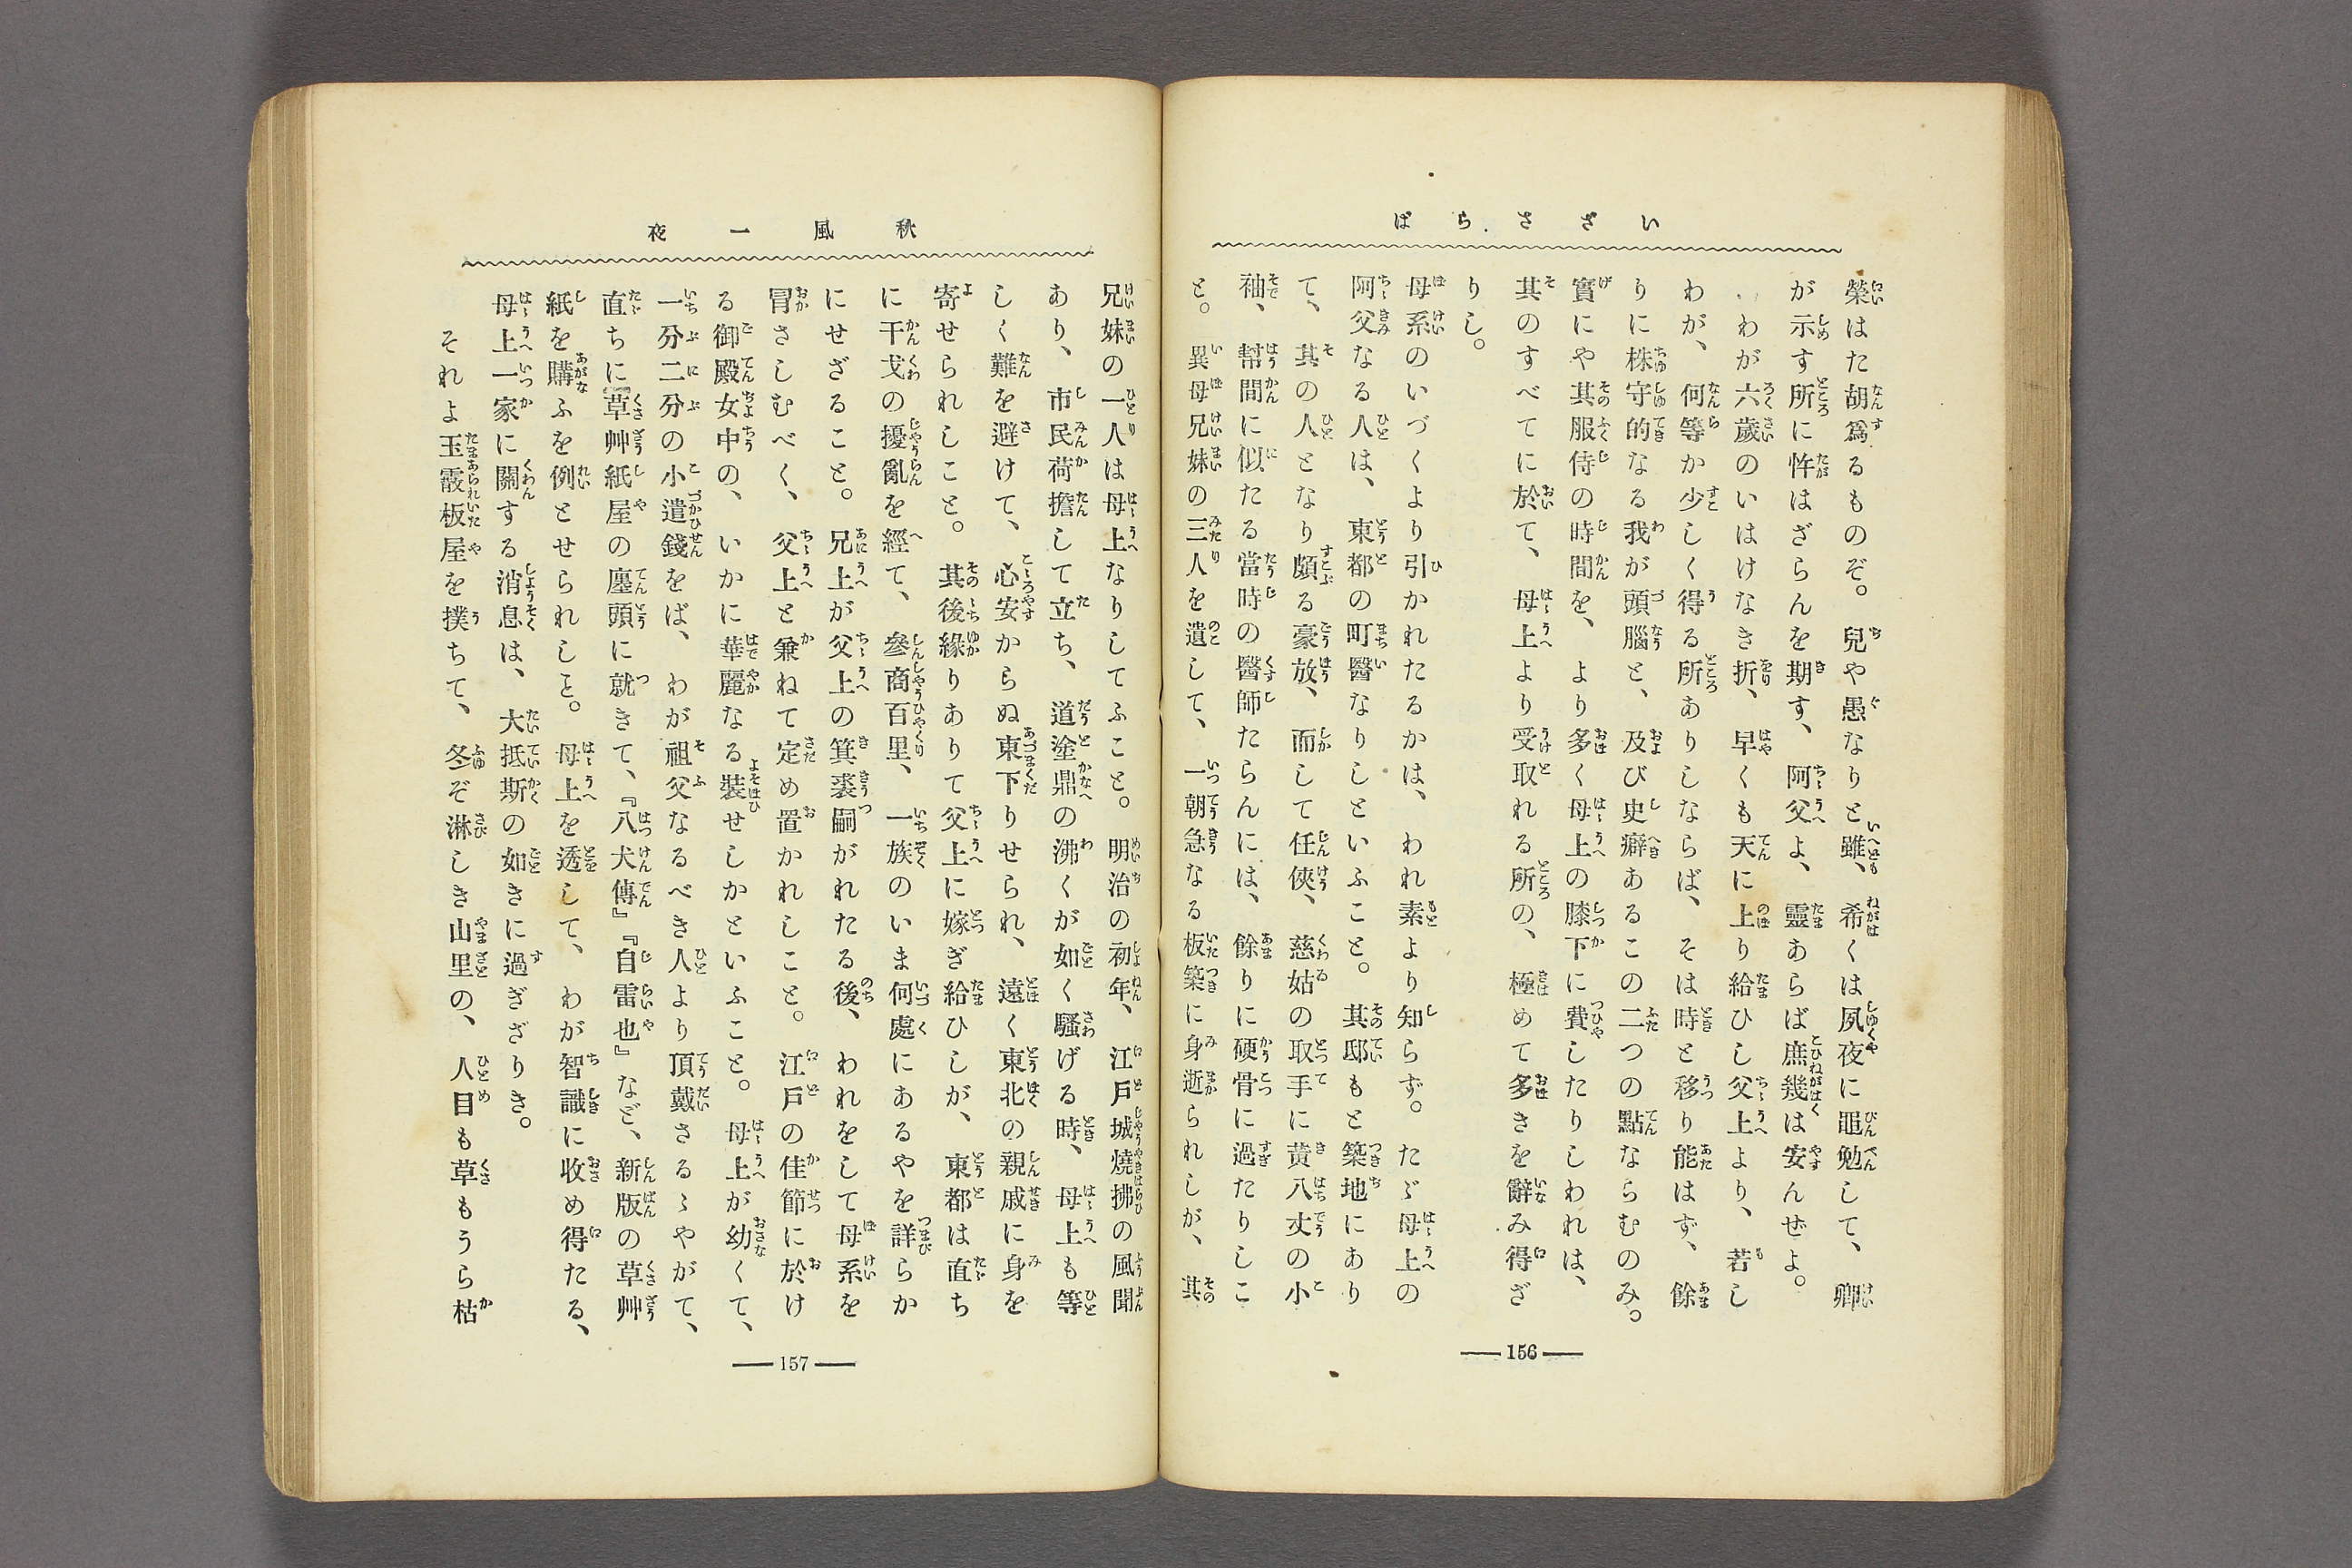 いざさらば
榮はた胡爲るものぞ。兒や愚なりと雖、希くは夙夜に黽勉して、卿
が示す所に忤はざらんを期す、阿父よ、靈あらば庶幾は安んぜよ。
わが六歲のいはけなき折、早くも天に上り給ひし父上より、若し
わが、何等か少しく得る所ありしならば、そは時と移り能はず、餘
りに株守的なる我が頭腦と、及び史癖あるこの二つの點ならむのみ。
實にや其服侍の時間を、より多く母上の膝下に費したりしわれは、
其のすべてに於て、母上より受取れる所の、極めて多きを辭み得ざ
りし。
母系のいづくより引かれたるかは、われ素より知らず。たゞ母上の
阿父なる人は、東都の町醫なりしといふこと。其邸もと築地にあり
て、其の人となり頗る豪放、而して任俠、慈姑の取手に黄八丈の小
袖、幇間に似たる當時の醫師たらんには、餘りに硬骨に過たりしこ
と。異母兄妹の三人を遺して、一朝急なる板築に身逝られしが、其
156
秋風一夜
兄妹の一人は母上なりしてふこと。明治の初年、江戸城燒拂の風聞
あり、市民荷擔して立ち、道塗鼎の沸くが如く騷げる時、母上も等
しく難を避けて、心安からぬ東下りせられ、遠く東北の親戚に身を
寄せられしこと。其後緣りありて父上に嫁ぎ給ひしが、東都は直ち
に干戈の擾亂を經て、參商百里、一族のいま何處にあるやを詳らか
にせざること。兄上が父上の箕裘嗣がれたる後、われをして母系を
冐さしむべく、父上と兼ねて定め置かれしこと。江戸の佳節に於け
る御殿女中の、いかに華麗なる裝せしかといふこと。母上が幼くて、
一分二分の小遣錢をば、わが祖父なるべき人より頂戴さるゝやがて、
直ちに『草艸紙屋の廛頭に就きて、『八犬傳』『自雷也』など、新版の草艸
紙を購ふを例とせられしこと。母上を透して、わが智識に收め得たる、
母上一家に關する消息は、大抵斯の如きに過ぎざりき。
それよ玉霰板屋を撲ちて、冬ぞ淋しき山里の、人目も草もうら枯
157